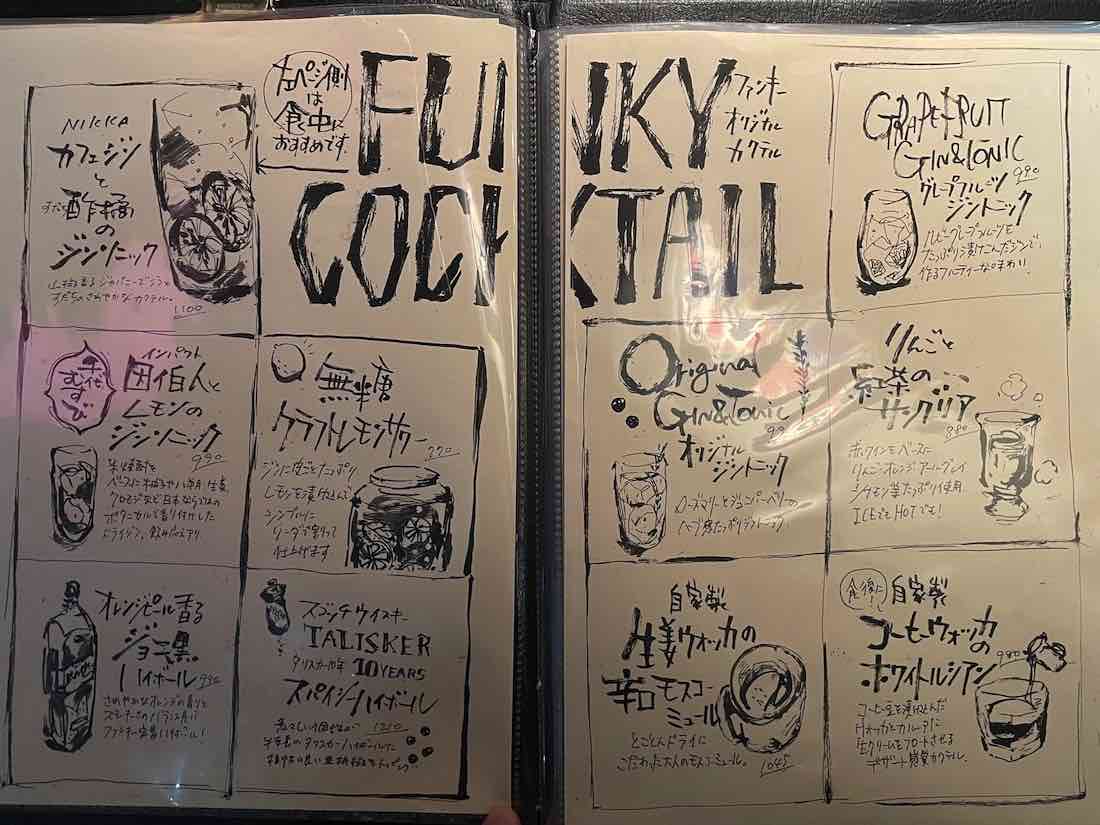 左ページ側
は
食中に
おすすめです。
FUNKY
COCKTAIL
ファンキー
オリジナル
カクテル
NIKKA
カフェジン
と
すだち
酢橘
の
ジンソニック
山椒香るジャパニーズジンと
すだちのさわやかなカクテル。
1100
千代
むすび
インパクト
因伯人と
レモンの
ジンソニック
990
米焼酎を
ドライジン。
無糖
クラフトレモンサワー
770
ジンに皮ごとたっぷり
レモンを漬け込んで
シンプルに
ソーダで割って
仕上げます
オレンジピール香る
ジョニ黒
ハイボール
990
さわやかなオレンジの香りと
スモーキーさのバランス良い
ファンキー定番ハイボール!
スコッチウイスキー
TALISKER
タリスカー10年
10YEARS
スパイシーハイボール
1210
GRAPEFRUIT
GIN&TONIC
990
グレープフルーツ
ジントニック
ルビーグレープフルーツを
たっぷり漬けこんだジンで
作るフルーティーな味わい。
Original
GIN&TONIC
オリジナル
ジントニック
ローズマリーとジュニパーベリーの
ハーブ感たっぷりジントニック。
りんごと
紅茶の
サングリア
880
赤ワインをベースに
りんご・オレンジ・アールグレイ
シナモン等たっぷり使用。
ICEでもHOTでも!
自家製
生姜ウォッカの
辛口モスコー
ミュール
とことんドライに
こだわった大人のモスコーミュール。
1045
食後に!
自家製
コーヒーウォッカ
の
ホワイトルシアン
990
コーヒー豆を漬け込んだ
ウォッカとカルーアに
生クリームをフロートさせる
デザート感覚カクテル。